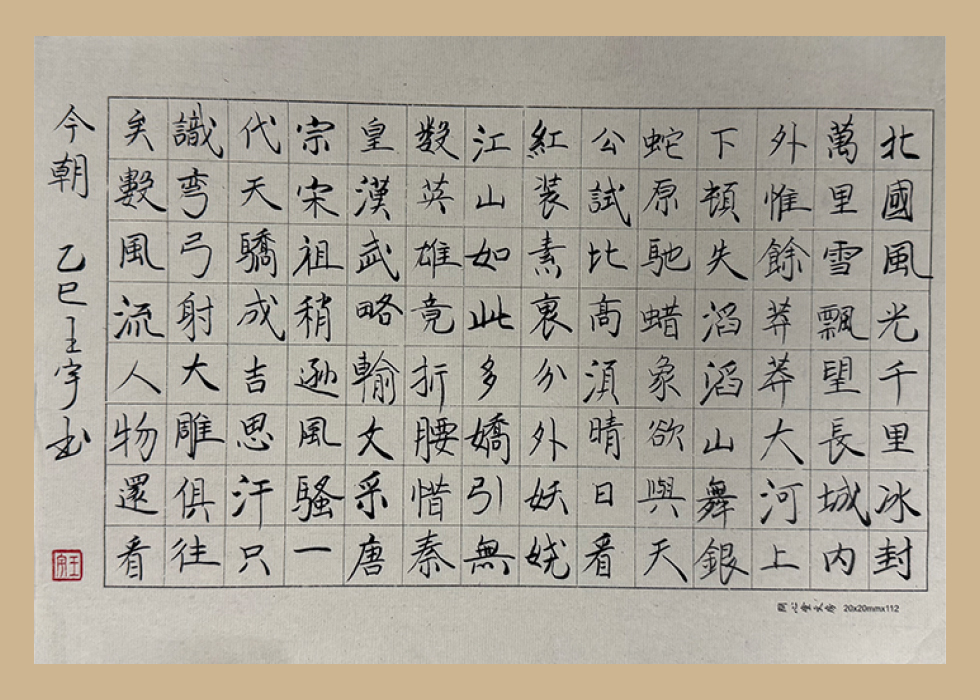 北國風光千里冰封
萬里雪飄望長城内
外惟餘莽莽大河上
下頓失滔滔山舞銀
蛇原馳蜡象欲與天
公試比髙須晴日看
紅装素裹分外妖娆
江山如此多嬌引無
數英雄竟折腰惜秦
皇漢武略輸文采唐
宗宋祖稍遜風騷一
代天驕成吉思汗只
識弯弓射大雕俱往
矣數風流人物還看
今朝 乙巳王宇书
王宇
開心堂文房 20x20mmx112